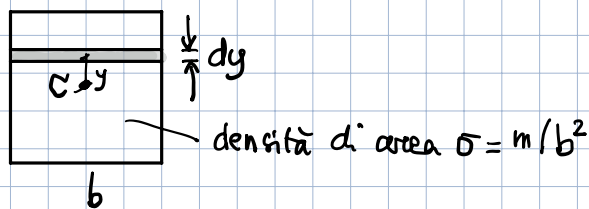 dy
C y
densità di area σ = m/b²
b